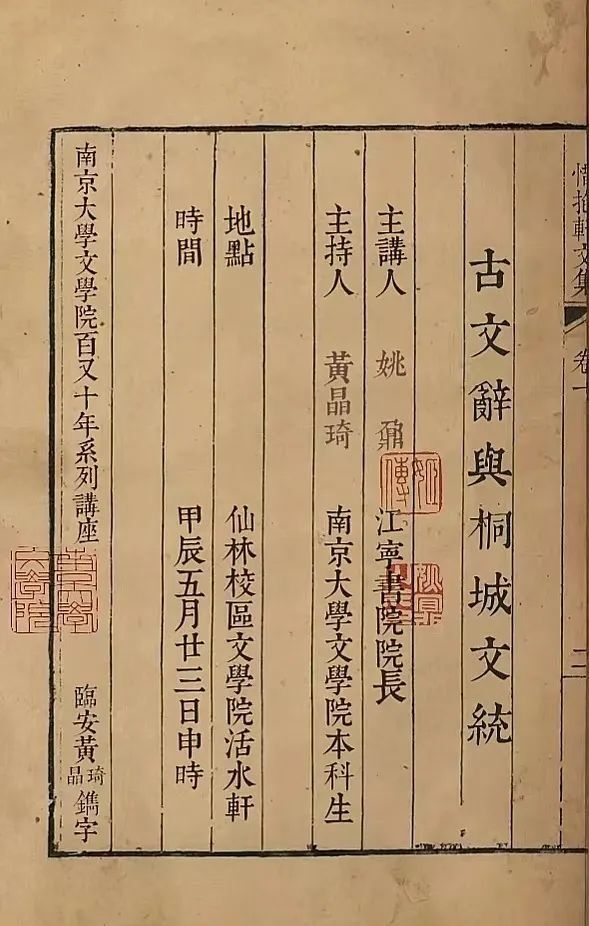 惜抱軒文集
卷
二
古文辭與桐城文統
主講人 姚鼐 江寧書院院長
主持人 黃晶琦 南京大學文學院本科生
地點 仙林校區文學院活水軒
時間 甲辰五月廿三日申時
南京大學文學院百又十年系列講座 臨安黃琦晶鐫字